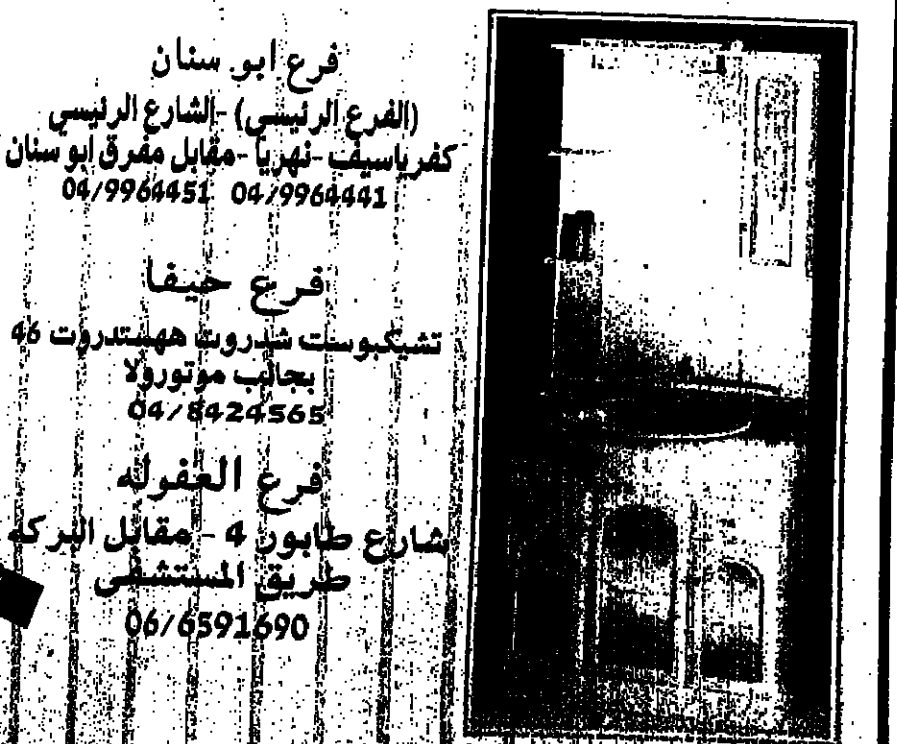 فرع ابو سنان
(الفرع الرئيسي) -الشارع الرئيسي
كفرياسيف -نهريا -مقابل مفرق ابو سنان
04/9964451 04/9964441
فرع حيفا
تشيكبوست شدروت ههستدروت 46
بجانب موتورولا
04/8424565
فرع العفوله
شارع طابور 4 - مقابل البركه
طريق المستشفى
06/6591690